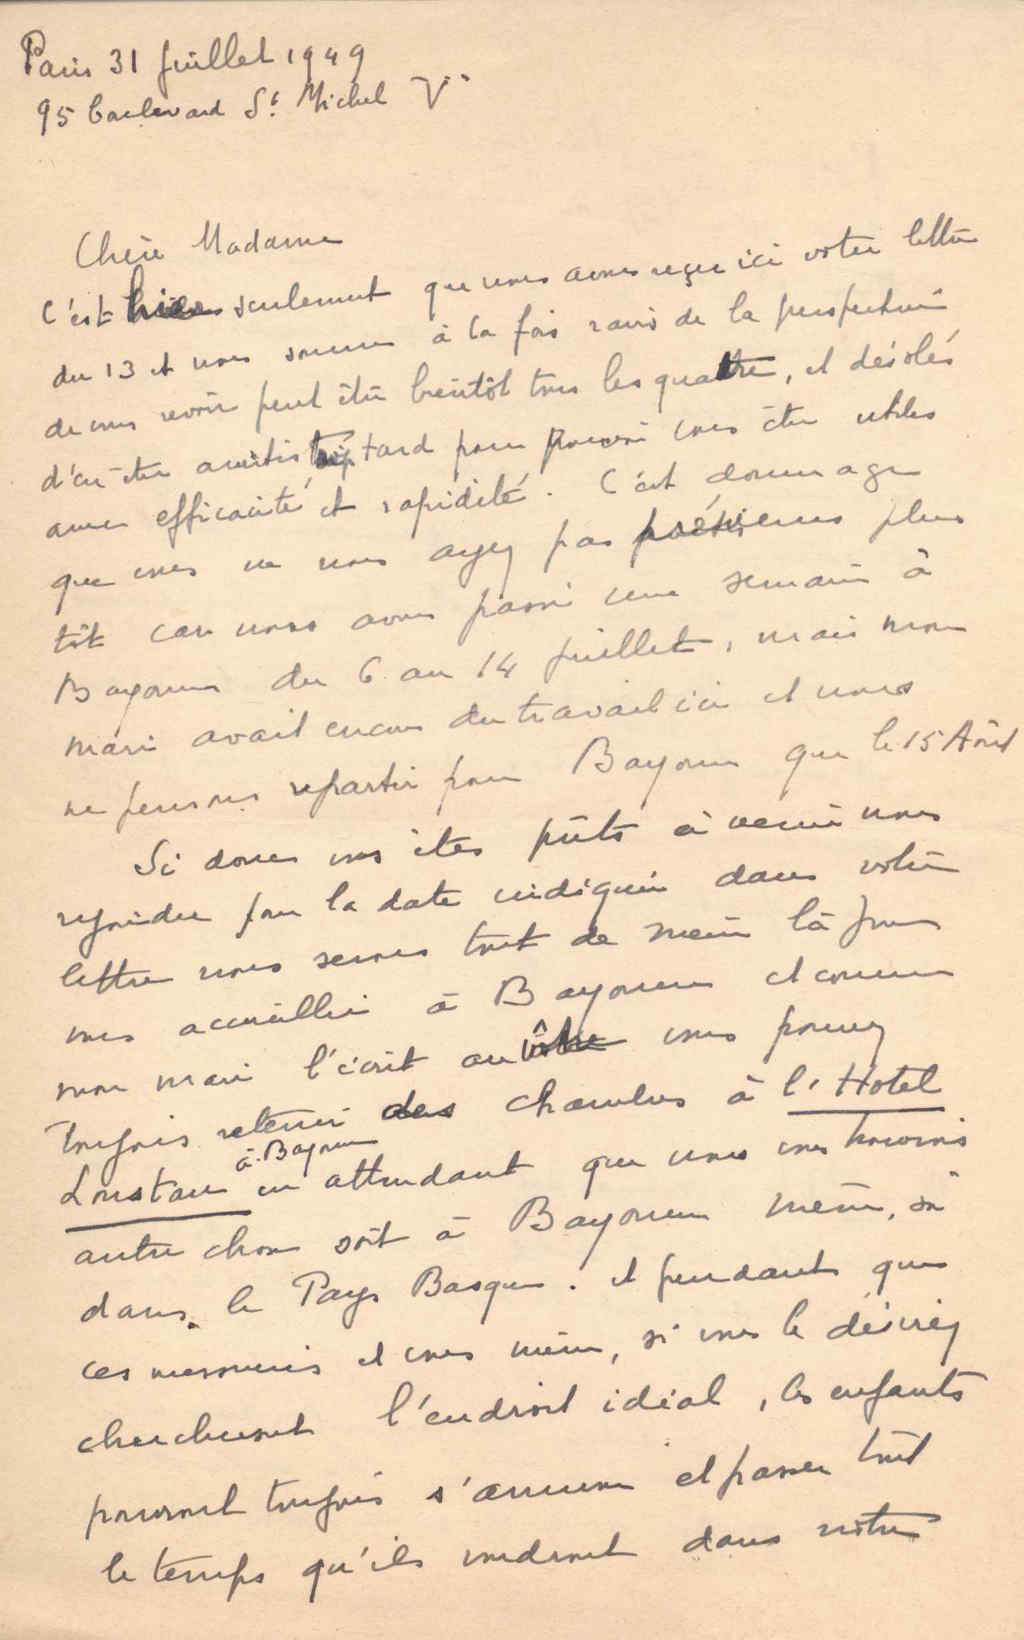 Paris 31 juillet 1949
95 boulevard St. Michel Ve
Chère Madame
C'est hier seulement que nous avons reçu ici votre lettre
du 13 et nous sommes à la fois ravis de la perspective
de vous revoir peut être bientôt tous les quatre, et désolés
d'en être avertis trop tard pour pouvoir vous être utiles
avec efficacité et rapidité. C'est dommage
que vous ne nous ayez pas prévenus plus
tôt car nous avons passé une semaine à
Bayonne du 6 au 14 juillet, mais mon
mari avait encore du travail ici et nous
ne pensons repartir pour Bayonne que le 15 Août
Si donc vous êtes prêts à venir nous
rejoindre pour la date indiquée dans votre
lettre nous serons tout de même là pour
vous accueillir à Bayonne et comme
mon mari l'écrit au vôtre vous pouvez
toujours retenir des chambres à l'Hotel
Loustau à Bayonne en attendant que nous vous trouvions
autre chose soit à Bayonne même, soit
dans le Pays Basque. et pendant que
ces messieurs et vous même, si vous le désirez
chercheront l'endroit idéal, les enfants
pourront toujours s'amuser et passer tout
le temps qu'ils voudront dans notre